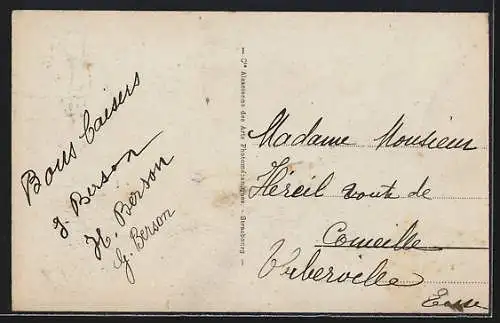 Bons baisers
J. Berson
H. Berson
G. Berson
— Cie Alsacienne des Arts Photomécaniques, — Strasbourg —
Madame Monsieur
Héreil route de
Corneille
Eure